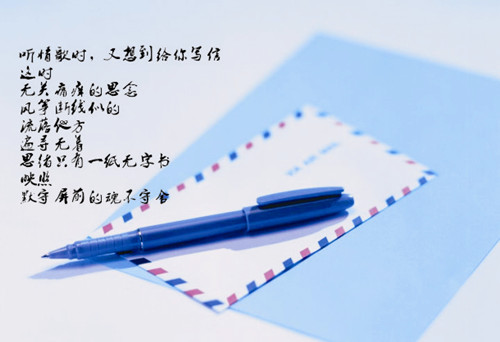 听情歌时，又想到给你写信
这时
无关痛痒的思念
风筝断线似的
流落他方
遍寻无着
思绪只有一纸无字书
映照
默守屏前的魂不守舍